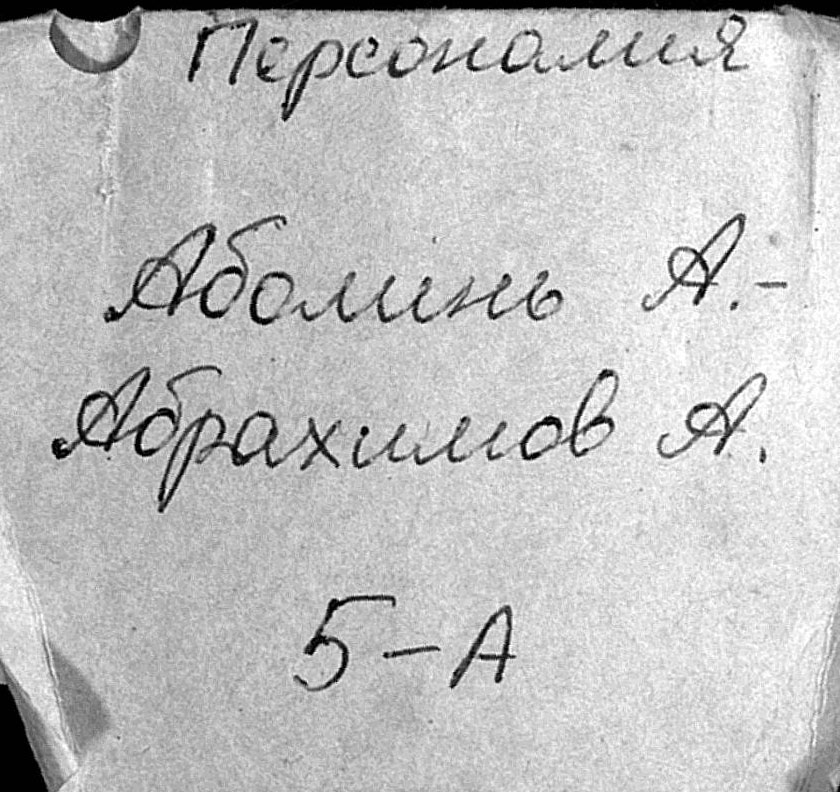 Персоналия
Аболинь А.-
Абрахимов А.
5-А